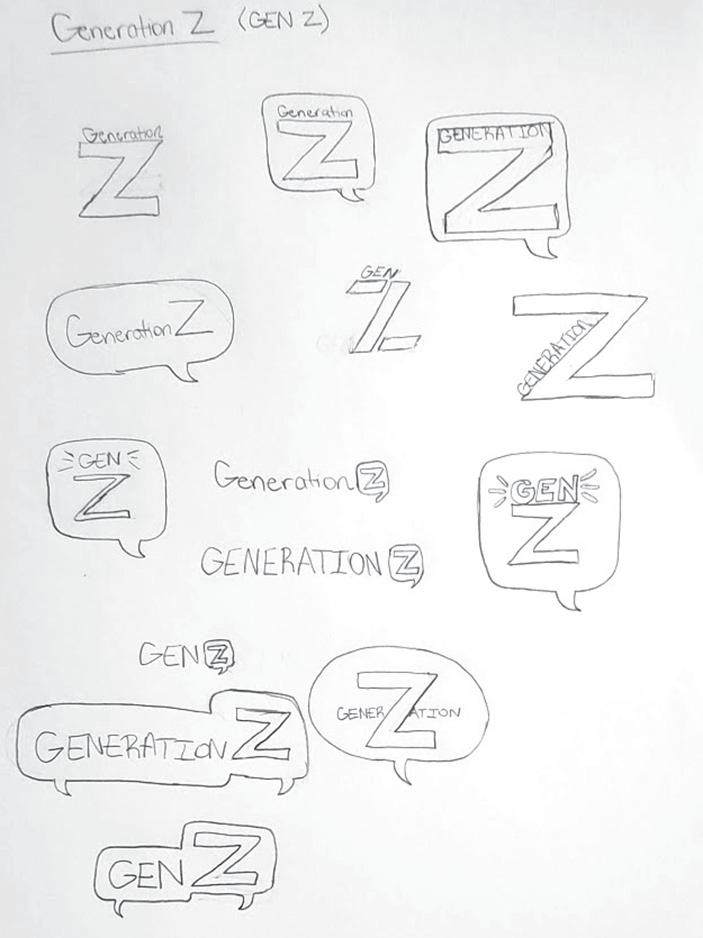 Generation Z (GEN Z)
Generation
Z
Generation
Z
GENERATION
Z
Generation Z
GEN
Z
GENERATION
Z
GEN
Z
Generation Z
GEN
Z
GENERATION Z
GEN Z
GENERATION Z
GENER Z ATION
GEN Z